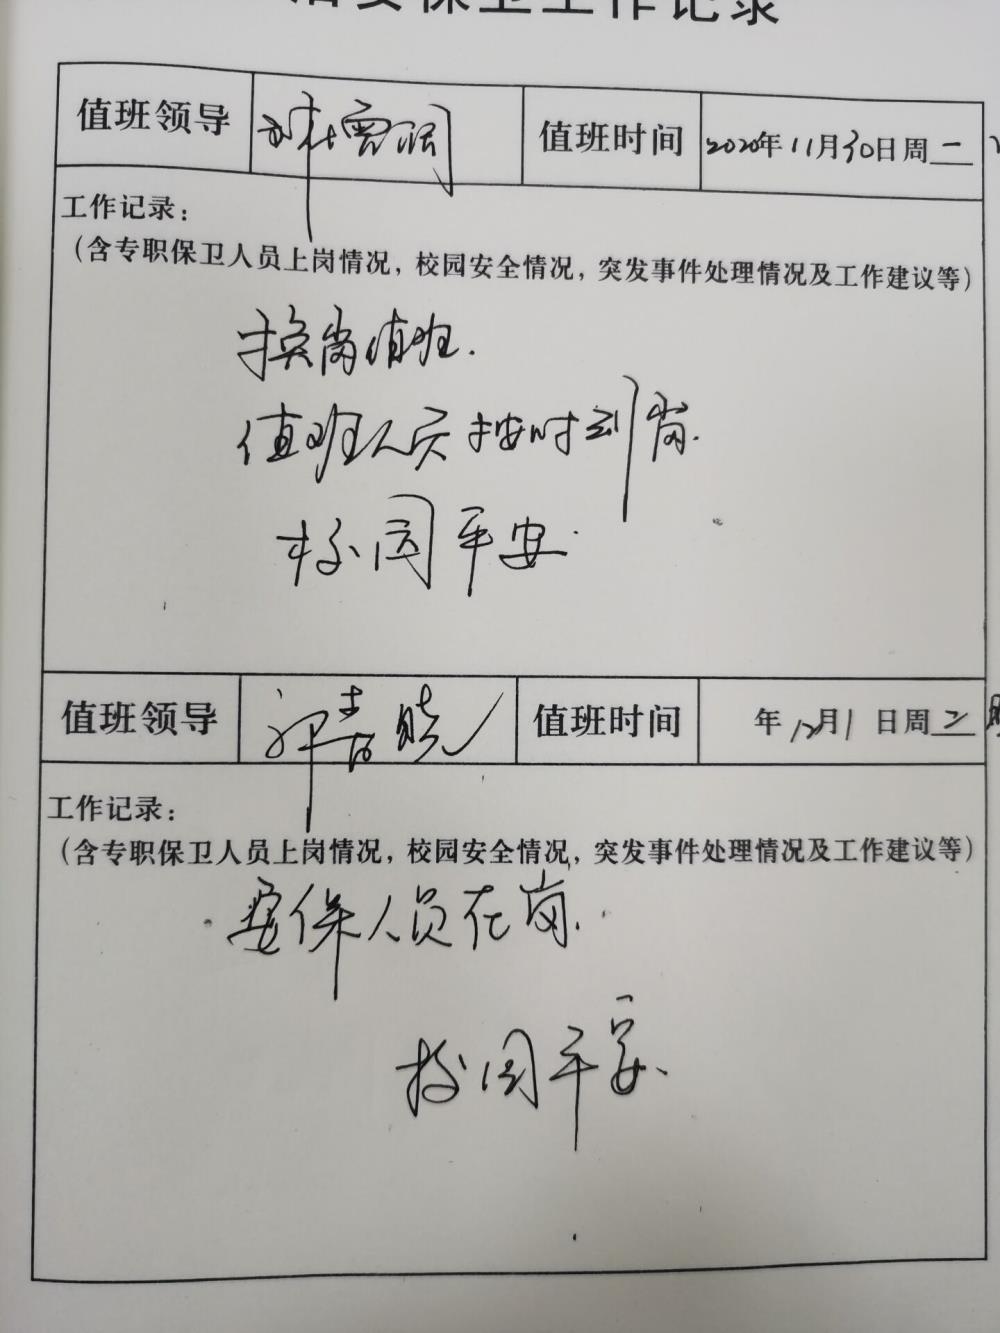 治安保卫工作记录
值班领导
值班时间 2020年11月30日周一
工作记录：
（含专职保卫人员上岗情况，校园安全情况，突发事件处理情况及工作建议等）
换岗值班.
值班人员按时到岗.
校园平安.
值班领导
值班时间 年12月1日周二
工作记录：
（含专职保卫人员上岗情况，校园安全情况，突发事件处理情况及工作建议等）
安保人员在岗.
校园平安.